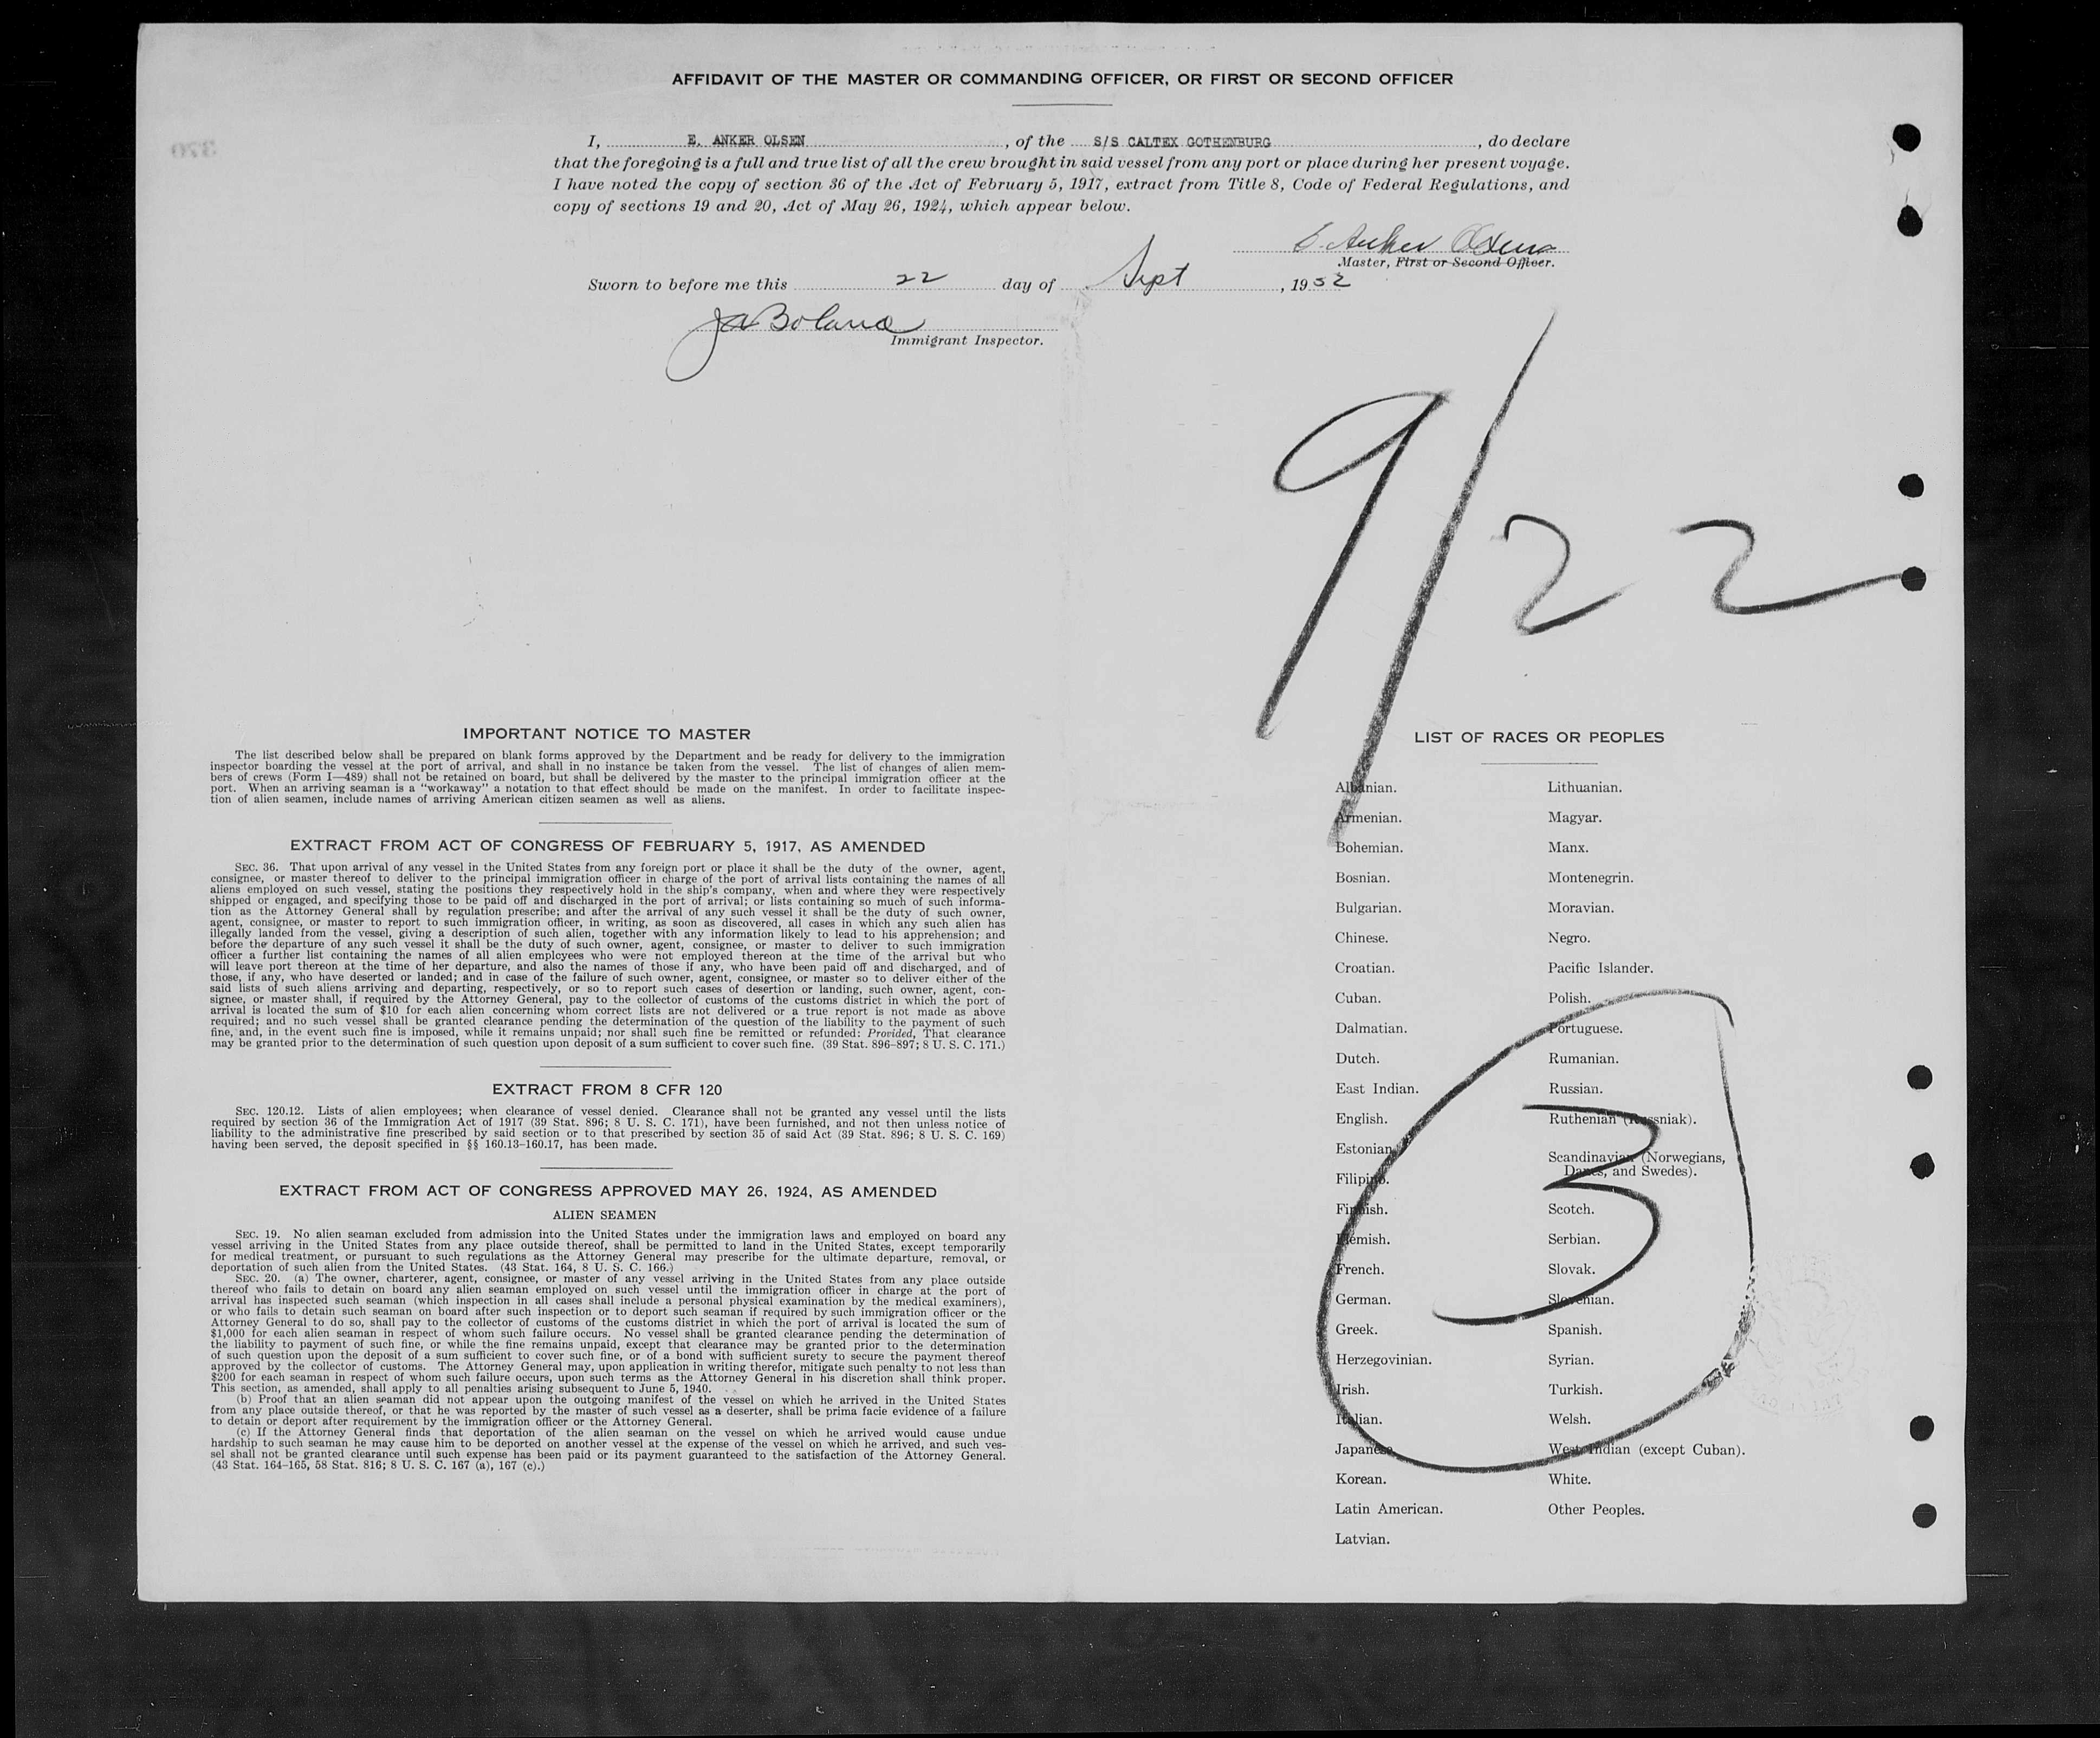 AFFIDAVIT OF THE MASTER OR COMMANDING OFFICER, OR FIRST OR SECOND OFFICER
I, E. ANKER OLSEN, of the S/S CALTEX GOTHENBURG, do declare
that the foregoing is a full and true list of all the crew brought in said vessel from any port or place during her present voyage.
I have noted the copy of section 36 of the Act of February 5, 1917, extract from Title 8, Code of Federal Regulations, and
copy of sections 19 and 20, Act of May 26, 1924, which appear below.
E. Anker Olsen
Master, First or Second Officer.
Sworn to before me this 22 day of Sept, 1952
Immigrant Inspector.
370
9/22
IMPORTANT NOTICE TO MASTER
The list described below shall be prepared on blank forms approved by the Department and be ready for delivery to the immigration
inspector boarding the vessel at the port of arrival, and shall in no instance be taken from the vessel. The list of changes of alien mem-
bers of crews (Form I—489) shall not be retained on board, but shall be delivered by the master to the principal immigration officer at the
port. When an arriving seaman is a "workaway" a notation to that effect should be made on the manifest. In order to facilitate inspec-
tion of alien seamen, include names of arriving American citizen seamen as well as aliens.
EXTRACT FROM ACT OF CONGRESS OF FEBRUARY 5, 1917, AS AMENDED
SEC. 36. That upon arrival of any vessel in the United States from any foreign port or place it shall be the duty of the owner, agent,
consignee, or master thereof to deliver to the principal immigration officer in charge of the port of arrival lists containing the names of all
aliens employed on such vessel, stating the positions they respectively hold in the ship's company, when and where they were respectively
shipped or engaged, and specifying those to be paid off and discharged in the port of arrival; or lists containing so much of such informa-
tion as the Attorney General shall by regulation prescribe; and after the arrival of any such vessel it shall be the duty of such owner,
agent, consignee, or master to report to such immigration officer, in writing, as soon as discovered, all cases in which any such alien has
illegally landed from the vessel, giving a description of such alien, together with any information likely to lead to his apprehension; and
before the departure of any such vessel it shall be the duty of such owner, agent, consignee, or master to deliver to such immigration
officer a further list containing the names of all alien employees who were not employed thereon at the time of the arrival but who
will leave port thereon at the time of her departure, and also the names of those if any, who have been paid off and discharged, and of
those, if any, who have deserted or landed; and in case of the failure of such owner, agent, consignee, or master so to deliver either of the
said lists of such aliens arriving and departing, respectively, or so to report such cases of desertion or landing, such owner, agent, con-
signee, or master shall, if required by the Attorney General, pay to the collector of customs of the customs district in which the port of
arrival is located the sum of $10 for each alien concerning whom correct lists are not delivered or a true report is not made as above
required; and no such vessel shall be granted clearance pending the determination of the question of the liability to the payment of such
fine, and, in the event such fine is imposed, while it remains unpaid; nor shall such fine be remitted or refunded: Provided, That clearance
may be granted prior to the determination of such question upon deposit of a sum sufficient to cover such fine. (39 Stat. 896–897; 8 U. S. C. 171.)
EXTRACT FROM 8 CFR 120
SEC. 120.12. Lists of alien employees; when clearance of vessel denied. Clearance shall not be granted any vessel until the lists
required by section 36 of the Immigration Act of 1917 (39 Stat. 896; 8 U. S. C. 171), have been furnished, and not then unless notice of
liability to the administrative fine prescribed by said section or to that prescribed by section 35 of said Act (39 Stat. 896; 8 U. S. C. 169)
having been served, the deposit specified in §§ 160.13–160.17, has been made.
EXTRACT FROM ACT OF CONGRESS APPROVED MAY 26, 1924, AS AMENDED
ALIEN SEAMEN
SEC. 19. No alien seaman excluded from admission into the United States under the immigration laws and employed on board any
vessel arriving in the United States from any place outside thereof, shall be permitted to land in the United States, except temporarily
for medical treatment, or pursuant to such regulations as the Attorney General may prescribe for the ultimate departure, removal, or
deportation of such alien from the United States. (43 Stat. 164, 8 U. S. C. 166.)
SEC. 20. (a) The owner, charterer, agent, consignee, or master of any vessel arriving in the United States from any place outside
thereof who fails to detain on board any alien seaman employed on such vessel until the immigration officer in charge at the port of
arrival has inspected such seaman (which inspection in all cases shall include a personal physical examination by the medical examiners),
or who fails to detain such seaman on board after such inspection or to deport such seaman if required by such immigration officer or the
Attorney General to do so, shall pay to the collector of customs of the customs district in which the port of arrival is located the sum of
$1,000 for each alien seaman in respect of whom such failure occurs. No vessel shall be granted clearance pending the determination of
the liability to payment of such fine, or while the fine remains unpaid, except that clearance may be granted prior to the determination
of such question upon the deposit of a sum sufficient to cover such fine, or of a bond with sufficient surety to secure the payment thereof
approved by the collector of customs. The Attorney General may, upon application in writing therefor, mitigate such penalty to not less than
$200 for each seaman in respect of whom such failure occurs, upon such terms as the Attorney General in his discretion shall think proper.
This section, as amended, shall apply to all penalties arising subsequent to June 5, 1940.
(b) Proof that an alien seaman did not appear upon the outgoing manifest of the vessel on which he arrived in the United States
from any place outside thereof, or that he was reported by the master of such vessel as a deserter, shall be prima facie evidence of a failure
to detain or deport after requirement by the immigration officer or the Attorney General.
(c) If the Attorney General finds that deportation of the alien seaman on the vessel on which he arrived would cause undue
hardship to such seaman he may cause him to be deported on another vessel at the expense of the vessel on which he arrived, and such ves-
sel shall not be granted clearance until such expense has been paid or its payment guaranteed to the satisfaction of the Attorney General.
(43 Stat. 164–165, 58 Stat. 816; 8 U. S. C. 167 (a), 167 (c).)
LIST OF RACES OR PEOPLES
Albanian.
Armenian.
Bohemian.
Bosnian.
Bulgarian.
Chinese.
Croatian.
Cuban.
Dalmatian.
Dutch.
East Indian.
English.
Estonian.
Filipino.
Finnish.
Flemish.
French.
German.
Greek.
Herzegovinian.
Irish.
Italian.
Japanese.
Korean.
Latin American.
Latvian.
Lithuanian.
Magyar.
Manx.
Montenegrin.
Moravian.
Negro.
Pacific Islander.
Polish.
Portuguese.
Rumanian.
Russian.
Ruthenian (Russniak).
Scandinavian (Norwegians,
Danes, and Swedes).
Scotch.
Serbian.
Slovak.
Slovenian.
Spanish.
Syrian.
Turkish.
Welsh.
West Indian (except Cuban).
White.
Other Peoples.
3